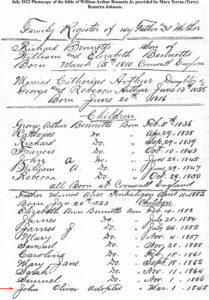 July 2022 Photocopy of the bible of William Arthur Bennetts Jr. provided by Mary Teresa (Terry)
Bennetts Johnson.
Family Register of my Father & Mother
Richard Bennetts Son of
William and Elizabeth Bennetts
Born March 15th 1810 Cornwall England
Married Catherine Arthur Daughter of
George and Rebecca Arthur June 13th 1835
Born June 20th 1816
Children
George Arthur Bennetts Born Feb. 8th 1836
Catherine Do. Apr. 29. 1838
Richard Do. Sept. 29. 1839
Francis Do. Oct. 10. 1843
John A Do. June 22. 1845
William A Do. June 29. 1847
Rebecca Do. Oct. 29. 1850
all Born at Cornwall England
Father Married April 11. 1852
Born June 22nd 1823 Children
Elizabeth Ann Bennetts Born Feb. 10. 1853
James Do. July 25. 1854
James J Do. July 24. 1855
Mary Do. Nov. 4. 1857
Samuel Do. Nov. 28. 1858
Caroline Do. Sept. 1860
Mary Jane Do. Sept. 18. 1862
Sarah Do. Nov. 11. 1864
Samuel Do. Nov. 1. 1866
John Oliver adopted Mar. 1. 1848